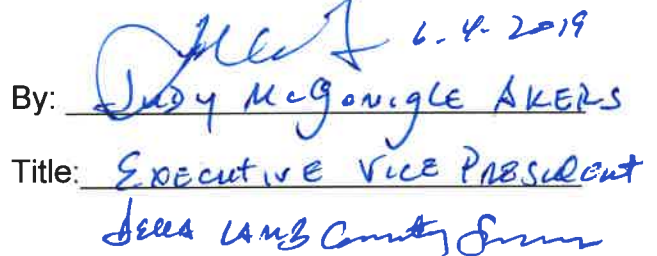 6-4-2019
By: Judy McGonigle AKERS
Title: Executive Vice President
Della LAMB Community Services